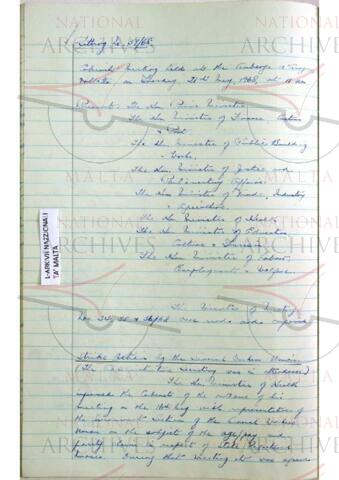 Sitting No. 37/68
Cabinet Meeting held at the Auberge d'Aragon
Valletta, on Tuesday, 21st May, 1968, at 10 am
Present: The Hon. Prime Minister
The Hon Minister of Finance, Customs
& Port
The Hon Minister of Public Building
& Works
The Hon Minister of Justice and
Parliamentary Affairs
The Hon Minister of Trade, Industry
& Agriculture
The Hon Minister of Health
The Hon Minister of Education
Culture & Tourism
The Hon Minister of Labour,
Employment & Welfare
The Minutes of Meeting
Nos 34, 35 & 36/68 were read and approved
Strike Action by the General Workers Union
The Hon Minister of Health
informed the Cabinet of the outcome of his
meeting on the 16th May with representatives of
the Government Section of the General Workers
Union on the subject of the
parity claim in respect of State Enrolled
Nurses. During that meeting it was
NATIONAL
ARCHIVES
MALTA
L-ARKIVJI NAZZJONALI
TA' MALTA